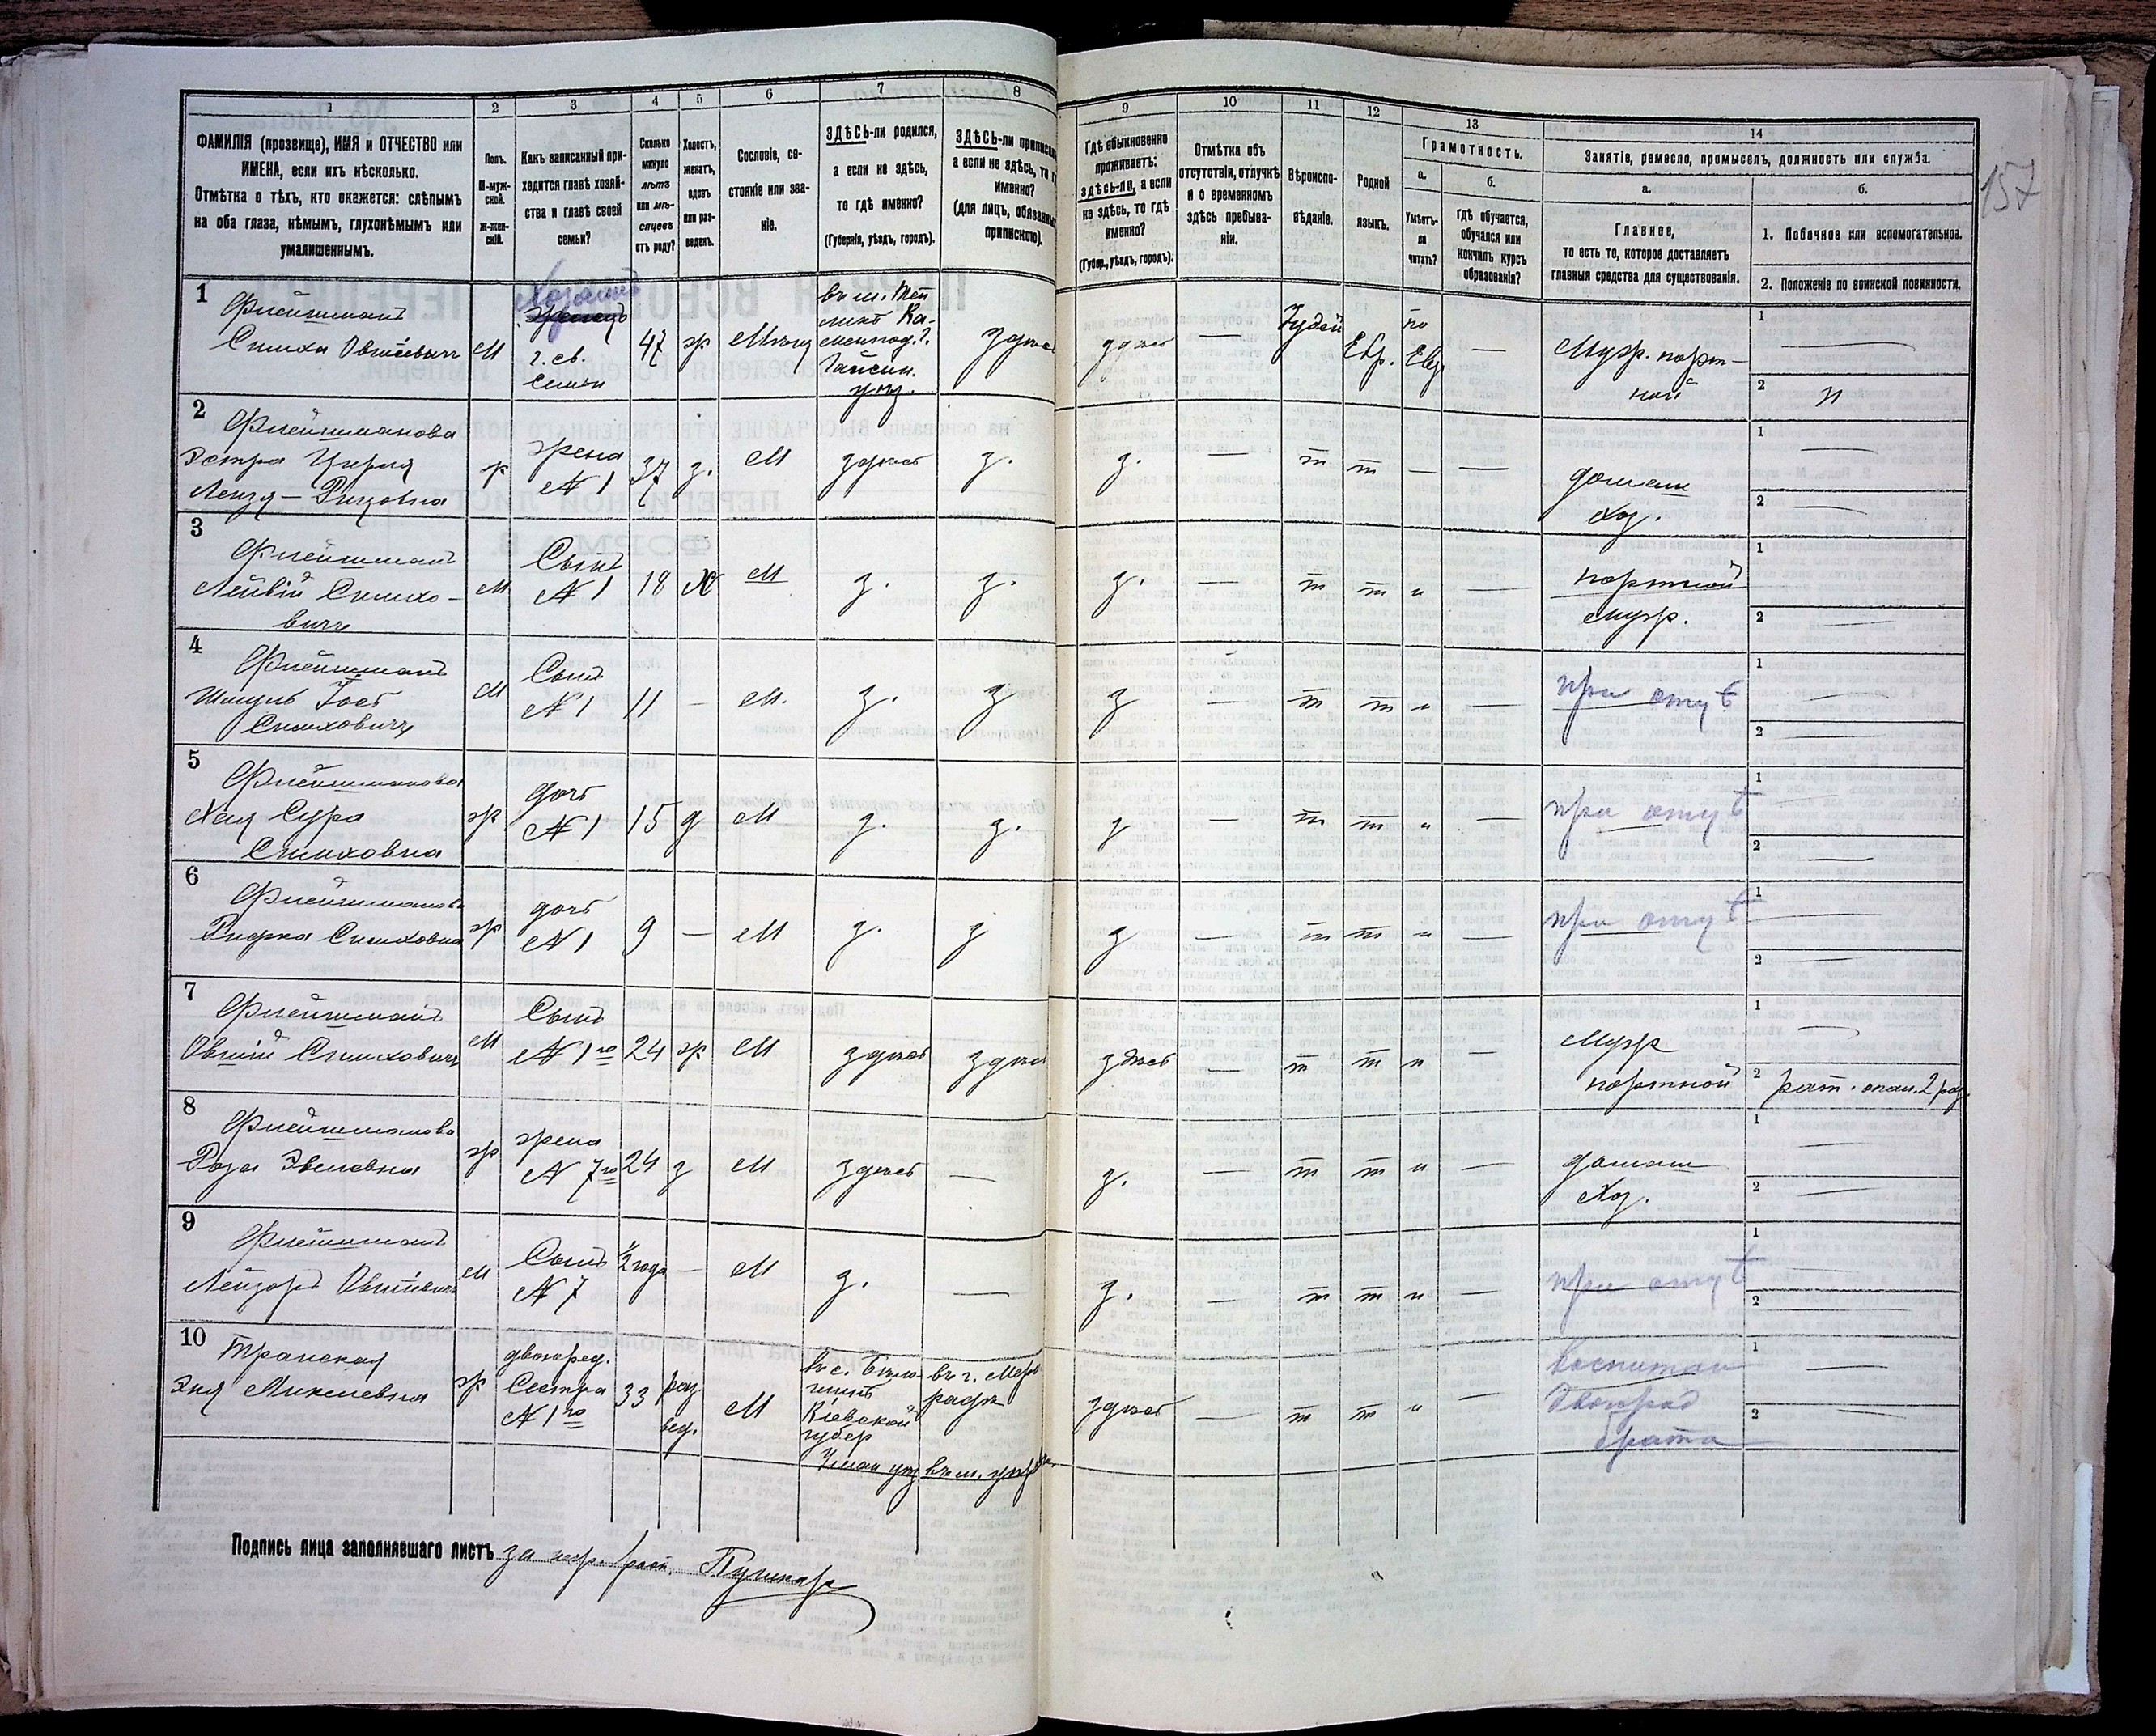 157
1 2 3 4 5 6 7 8 9 10 11 12 13 14
ФАМИЛІЯ (прозвище), ИМЯ и ОТЧЕСТВО или
ИМЕНА, если ихъ нѣсколько.
Отмѣтка о тѣхъ, кто окажется: слѣпымъ
на оба глаза, нѣмымъ, глухонѣмымъ или
умалишеннымъ.
Полъ.
М-муж-
ской.
Ж-жен-
скій.
Какъ записанный при-
ходится главѣ хозяй-
ства и главѣ своей
семьи?
Сколько
минуло
лѣтъ
или мѣ-
сяцевъ
отъ роду?
Холостъ,
женатъ,
вдовъ
или раз-
веденъ.
Сословіе, со-
стояніе или зва-
ніе.
ЗДѢСЬ-ли родился,
а если не здѣсь,
то гдѣ именно?
(Губернія, уѣздъ, городъ).
ЗДѢСЬ-ли приписанъ
а если не здѣсь, то гдѣ
именно?
(для лицъ, обязанныхъ
припискою).
Гдѣ обыкновенно
проживаетъ:
здѣсь-ли, а если
не здѣсь, то гдѣ
именно?
(Губер., уѣздъ, городъ).
Отмѣтка объ
отсутствіи, отлучкѣ
и о временномъ
здѣсь пребыва-
ніи.
Вѣроиспо-
вѣданіе.
Родной
языкъ.
Грамотность.
а.
Умѣетъ-
ли
читать?
б.
гдѣ обучается,
обучался или
кончилъ курсъ
образованія?
Занятіе, ремесло, промыселъ, должность или служба.
а.
Главное,
то есть то, которое доставляетъ
главныя средства для существованія.
б.
1. Побочное или вспомогательное.
2. Положеніе по воинской повинности.
1
Флейшманъ
Симха Овшіевичъ
М
Хозяинъ
г. св.
семьи
47
ж
Мѣщ
Гайсин.
уѣз.
здѣсь
здѣсь
—
Іудей
Евр.
по
Евр
—
Муж. порт-
ной
1 —
2 и
2
Флейшманова
Эстра Цирля
ж
жена
№ 1
37
з.
М
здѣсь
з.
з.
—
т
т
—
—
домаш
хоз.
1 —
2 —
3
Флейшманъ
Лейвій Симхо-
вичъ
М
Сынъ
№ 1
18
х
М
з.
з.
з.
—
т
т
"
—
портной
муж.
1 —
2 —
4
Флейшманъ
Шмуль Іосъ
Симховичъ
М
Сынъ
№ 1
11
—
М.
з.
з
з
—
т
т
"
—
при отцѣ
1 —
2 —
5
Флейшманова
Хая Сура
Симховна
ж
дочь
№ 1
15
д
М
з.
з.
з
—
т
т
"
—
при отцѣ
1 —
2 —
6
Флейшманова
Рифка Симховна
ж
дочь
№ 1
9
—
М
з.
з
з
—
т
т
"
—
при отцѣ
1 —
2 —
7
Флейшманъ
Овшій Симховичъ
М
Сынъ
№ 1го
24
ж
М
здѣсь
здѣсь
здѣсь
—
т
т
"
—
Муж
портной
1 —
2 рат. опол. 2 раз.
8
Флейшманова
Роза Звелевна
ж
жена
№ 7го
24
з
М
здѣсь
—
з.
—
т
т
"
—
домаш
хоз.
1 —
2 —
9
Флейшманъ
Лейзоръ Овшіевичъ
М
Сынъ
№ 7
1/2 года
—
М
з.
—
з.
—
т
т
"
—
при отцѣ
1 —
2 —
10
Транская
Эня Михелевна
ж
двоюрод.
Сестра
№ 1го
33
раз
вед.
М
Кіевской
губер
Уман уѣз
здѣсь
—
т
т
"
—
воспитан
двоюрод
брата
1 —
2 —
Подпись лица заполнявшаго листъ за негр. расп. Пушкарь